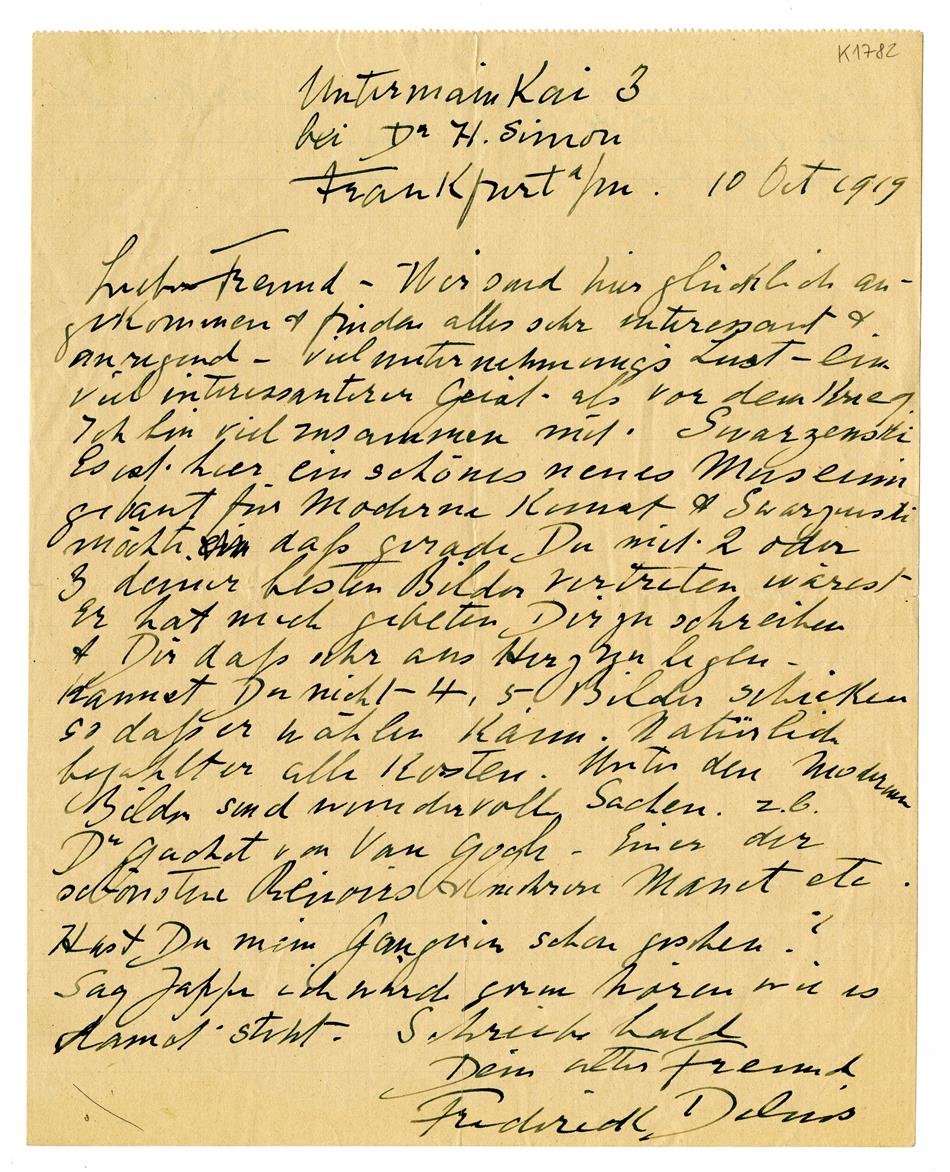 K1782
Untermain Kai 3
bei Dr H. Simon
Frankfurt a/m. 10 Oct 1919
Lieber Freund – Wir sind hier glücklich an-
gekommen & finden alles sehr interessant &
anregend – viel unternehmungs Lust – ein
viel interessanterer Geist als vor dem Krieg.
Ich bin viel zusammen mit Swarzenski
Es ist hier ein schönes neues Museum
gebaut für Moderne Kunst & Swarzenski
möchte daß gerade Du mit 2 oder
3 deiner besten Bilder vertreten wärest
Er hat mich gebeten Dir zu schreiben
& Dir daß sehr ans Herz zu legen –
Kannst Du nicht 4, 5 Bilder schicken
so daß er wählen kann. Natürlich
bezahlt er alle Kosten. Unter den Modernen
Bilder sind wundervolle Sachen. z.b.
Dr Gachet von Van Gogh – Einer der
schönsten Renoirs & mehrere Manet etc.
Hast Du mein Gauguin schon gesehen?
Sag Jappe ich würde gern hören wie es
damit steht. Schreibe bald
Dein alter Freund
Frederick Delius